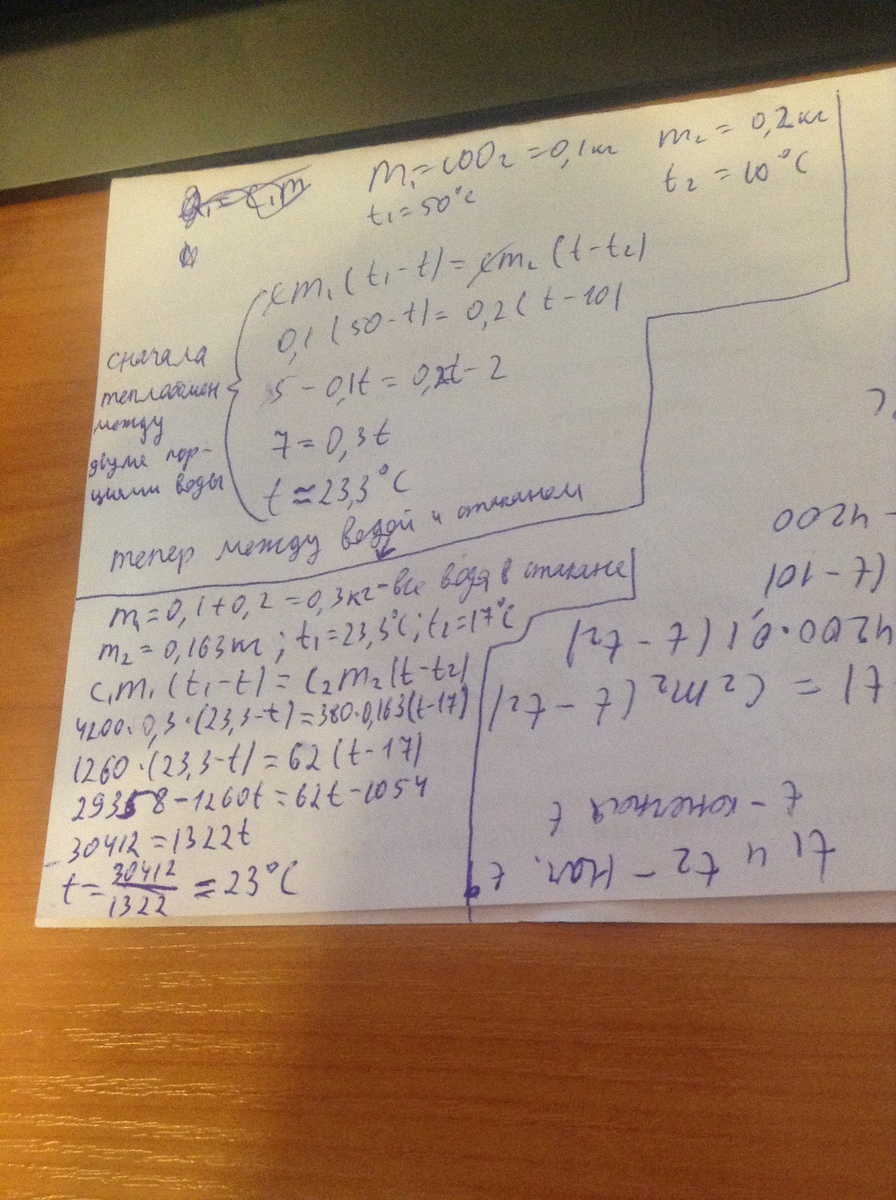 m₁=100г=0,1кг
m₂=0,2кг
t₁=50°C
t₂=10°C
cm₁(t₁-t)=cm₂(t-t₂)
0,1(50-t)=0,2(t-10)
5-0,1t=0,2t-2
7=0,3t
t≈23,3°C
сначала
теплообмен
между
двумя пор-
циями воды
тепер между водой и стаканом
m₁=0,1+0,2=0,3кг-все вода в стакане
m₂=0,163кг; t₁=23,3°C; t₂=17°C
c₁m₁(t₁-t)=c₂m₂(t-t₂)
4200·0,3·(23,3-t)=380·0,163(t-17)
1260·(23,3-t)=62(t-17)
29358-1260t=62t-1054
30412=1322t
t=30412/1322=23°C
t₁ и t₂ - нач. t
t - конечная t
t)=c₂m₂(t-t₂)
4200·0,1(t-t₂)
(t-10)
4200